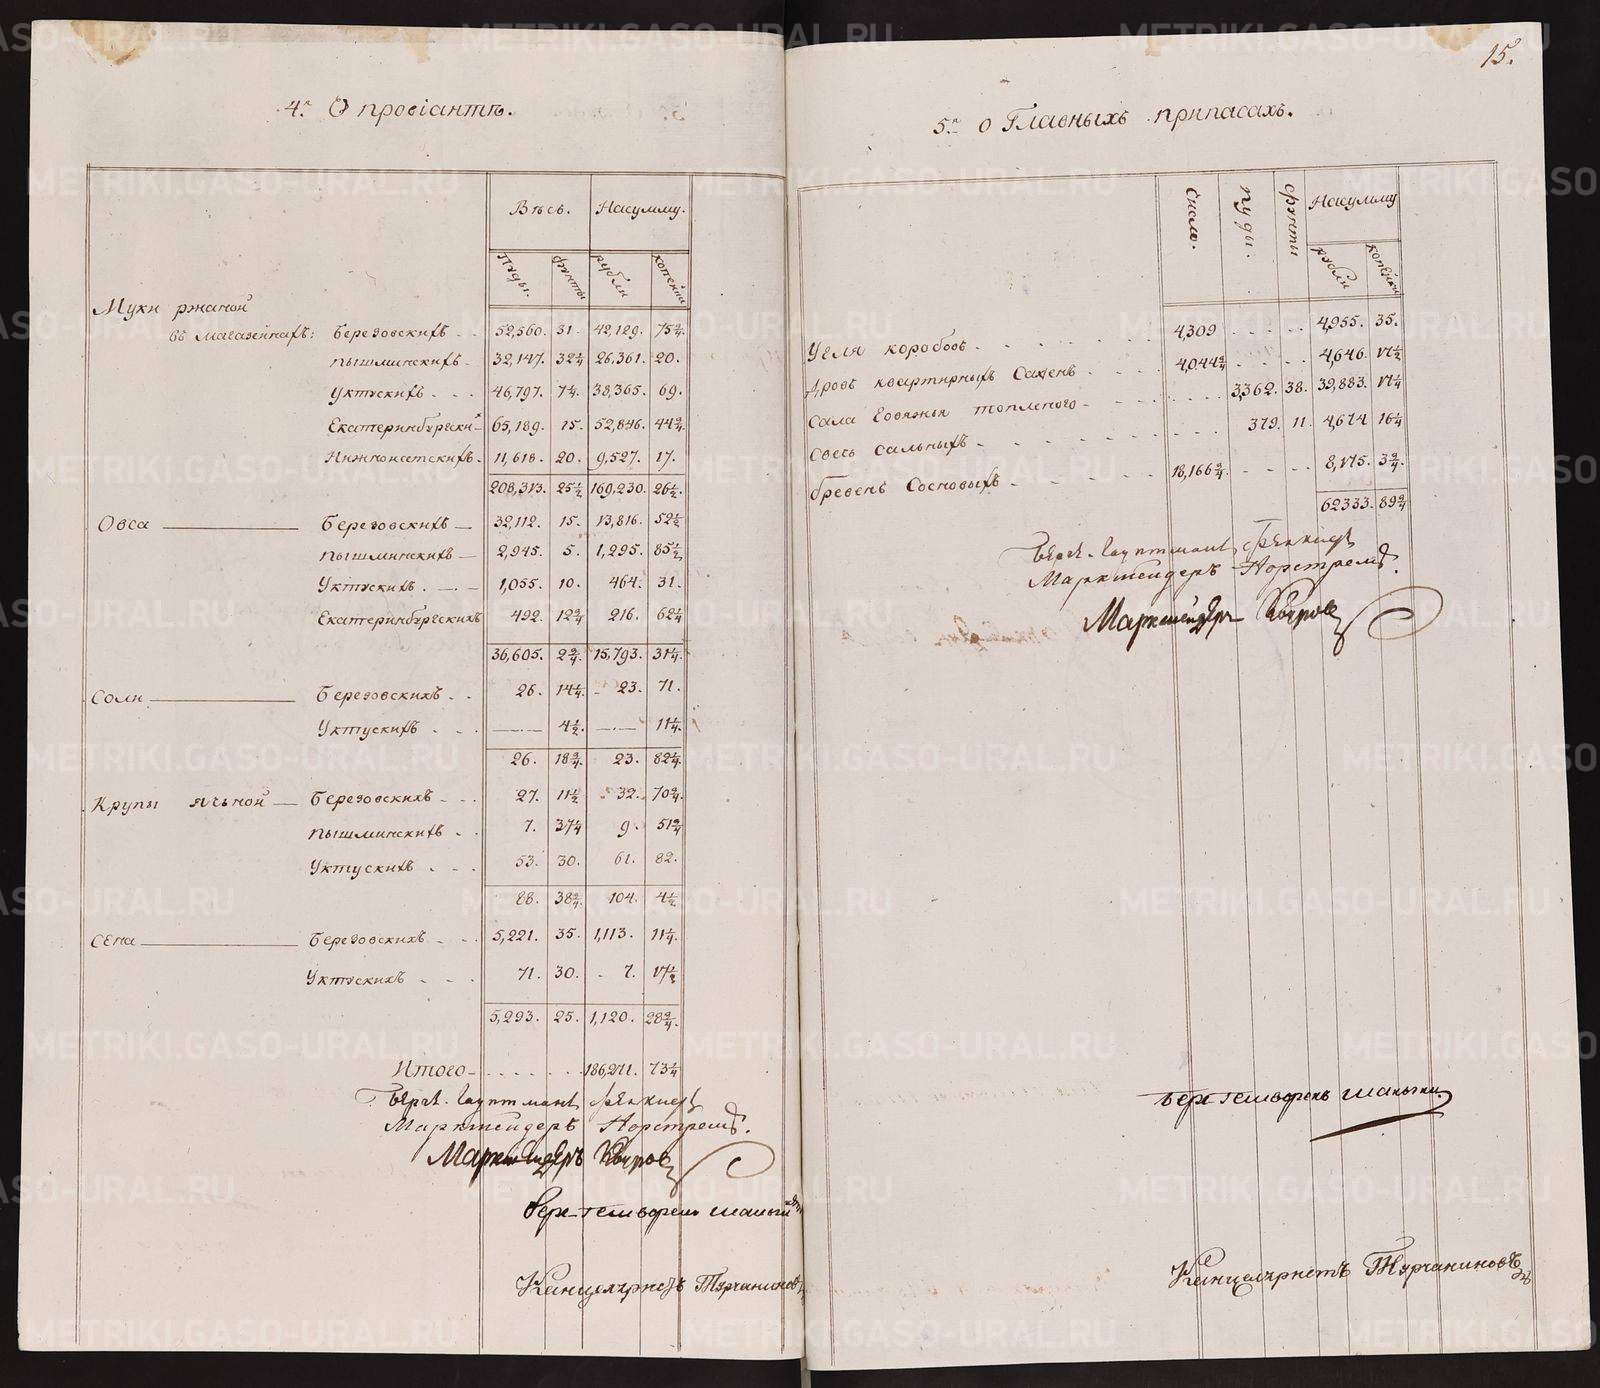 4е О провіантѣ.
Вѣсъ. На сумму.
Пуды. фунты рубли копѣйки
Муки ржаной
въ магазейнахъ: Березовскихъ 52,560. 31. 42,129. 75 3/4
Пышминскихъ 32,147. 32 1/4 26,361. 20.
Уктускихъ 46,797. 7 1/4. 38,365. 69.
Екатеринбургски 65,189. 15. 52,846. 44 2/4
Нижноисетскихъ 11,618. 20. 9,527. 17.
208,313. 25 1/2 169,230. 26 1/2.
Овса Березовскихъ 32,112. 15. 13,816. 52 1/2
Пышминскихъ 2,945. 5. 1,295. 85 1/2
Уктускихъ 1,055. 10. 464. 31.
Екатеринбургскихъ 492. 12 2/4 216. 62 1/4
36,605. 2 3/4. 15,793. 31 1/4.
Соли Березовскихъ 26. 14 1/4. 23. 71.
Уктускихъ 4 1/2. 11 1/4.
26. 18 3/4. 23. 82 1/4
Крупы ячной Березовскихъ 27. 11 1/2 32. 70 3/4.
Пышминскихъ 7. 37 1/4 9. 51 3/4
Уктускихъ 53. 30. 61. 82.
88. 38 3/4. 104. 4 1/2
Сена Березовскихъ 5,221. 35. 1,113. 11 1/4.
Уктускихъ 71. 30. 7. 17 1/2
5,293. 25. 1,120. 28 3/4.
Итого 186,271. 73 1/4
Бергъ-гауптманъ
Маркшейдеръ Норстремъ.
Маркшейдеръ
Берх-гешворенъ
Канцеляристъ Турчаниновъ
15.
5е о Главныхъ припасахъ.
Числ. пуды. фунты На сумму
рубли копѣйки
Угля коробовъ 4,309 4,955. 35.
Дровъ квартирныхъ Сажень 4,044 2/4 4,646. 17 1/2
Сала Говяжья топленого 3,362. 38. 39,883. 17 1/4
Свечь сальныхъ 379. 11. 4,674 16 1/4
бревенъ Сосновыхъ 18,166 2/4. 8,175. 3 2/4.
62333. 89 2/4
Бергъ-гауптманъ
Маркшейдеръ Норстремъ.
Маркшейдеръ
Берг-гешворенъ
Канцеляристъ Турчаниновъ
METRIKI.GASO-URAL.RU